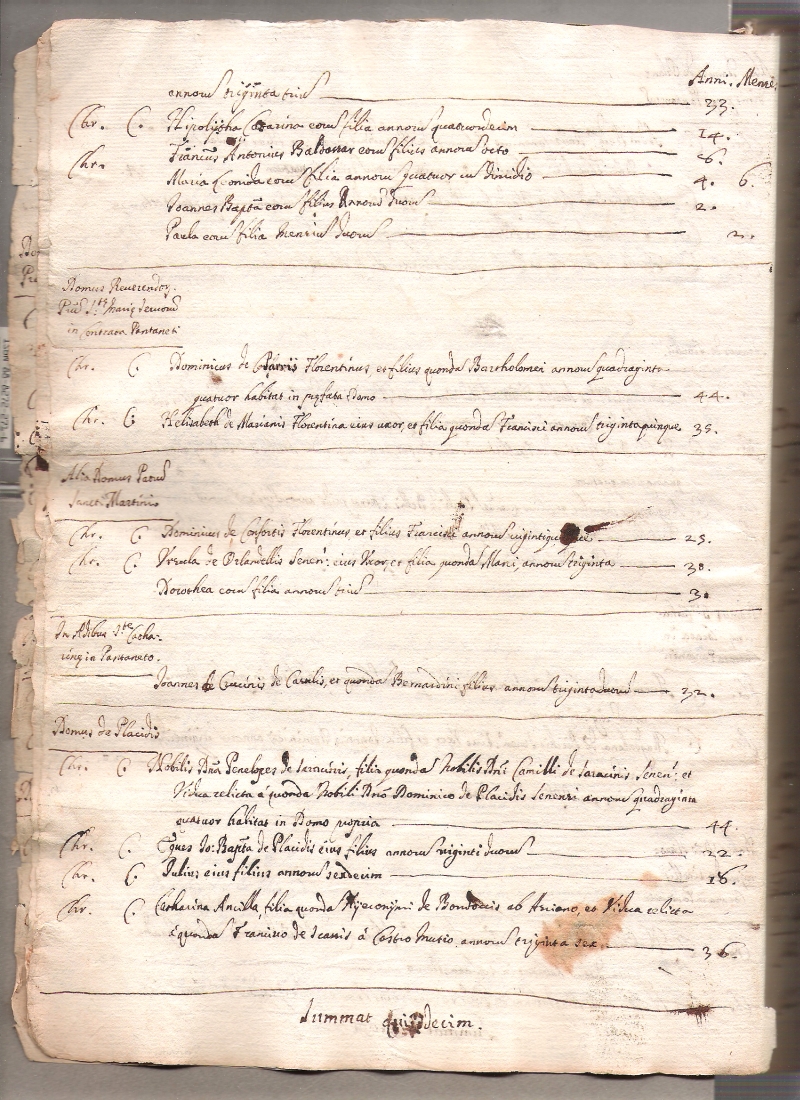 Anni. Mense.
annorum triginta trium 33.
Chr. C. Hipolytha Catarina eorum filia annorum quatuordecim 14.
Chr. Francus Antonius Baldassar eorum filius annorum octo
Maria eorum filia annorum quatuor cum dimidio 4. 6.
Joannes Bapta eorum filius Annorum duorum 2.
Paula eorum filia mensium duorum 2.
Domus Reverendor.
Prũ Stę Marię Servorum
in contrata Pantaneti
Chr. C. Dominicus de Florentinus et filius quondã Bartholomei annorum quadraginta
quatuor habitat in pręfata Domo 44.
Chr. C. Helisabeth de Marianis Florentina eius uxor, et filia quondã Francisci annorum triginta quinque 35.
Alia Domus Patrum
Sancti Martini
Chr. C. Dominicus de Confortis Florentinus et filius Francisci annorum viginti 25.
Chr. C. Ursula de Orlandillis Senen: eius Uxor, et filia quondã annorum triginta 30.
Dorothea eorum filia annorum trium 3.
In Ędibus Stę Catha-
rinę in Pantaneto.
Joannes de de et quondã Bernardini filius annorum triginta duorum 32.
Domus de Placidis
Chr. C. Nobilis Dña Penelopes de Saracinis, filia quondã Nobilis Dñi Camilli de Saracinis Senen: et
Vidua relicta á quondã Nobili Dño Dominico de Placidis Senensi annorum quadraginta
quatuor habitat in Domo propria 44.
Chr. C. Eques Jo: Bapta de Placidis eius filius annorum viginti duorum 22.
Chr. C. Julius eius filius annorum sexdecim 16.
Chr. C. Catharina Ancilla, filia quondã Hyeronymi de ab et Vidua relicta
á quondã Francisco de á Castro annorum triginta sex 36.
Summat quindecim.